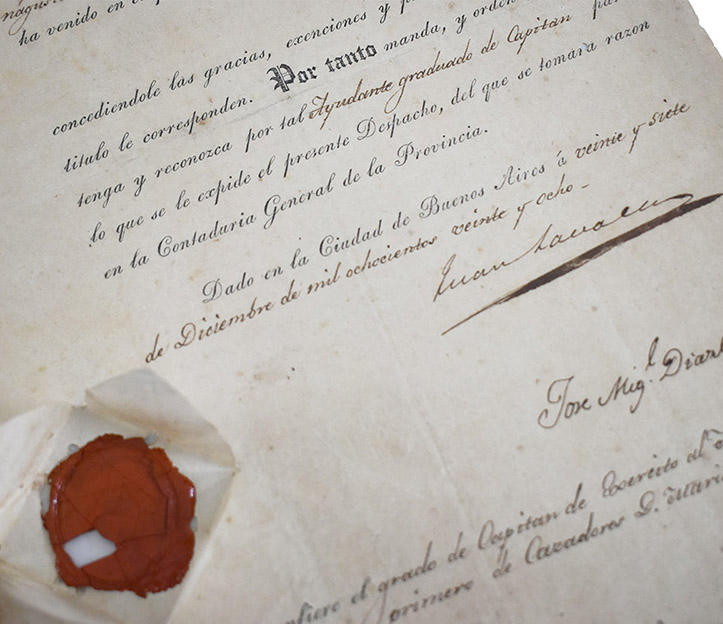 ha venido en
concediendole las gracias, exenciones y
titulo le corresponden. Por tanto manda, y orden
tenga y reconozca por tal Ayudante graduado de Capitan
lo que se le expide el presente Despacho, del que se tomara razon
en la Contaduria General de la Provincia.
Dado en la Ciudad de Buenos Aires á veinte y siete
de Diciembre de mil ochocientos veinte y ocho-
Juan Lavalle
Jose Mig.l Diaz
el grado de Capitan de Exercito al
primero de Cazadores D. Mari